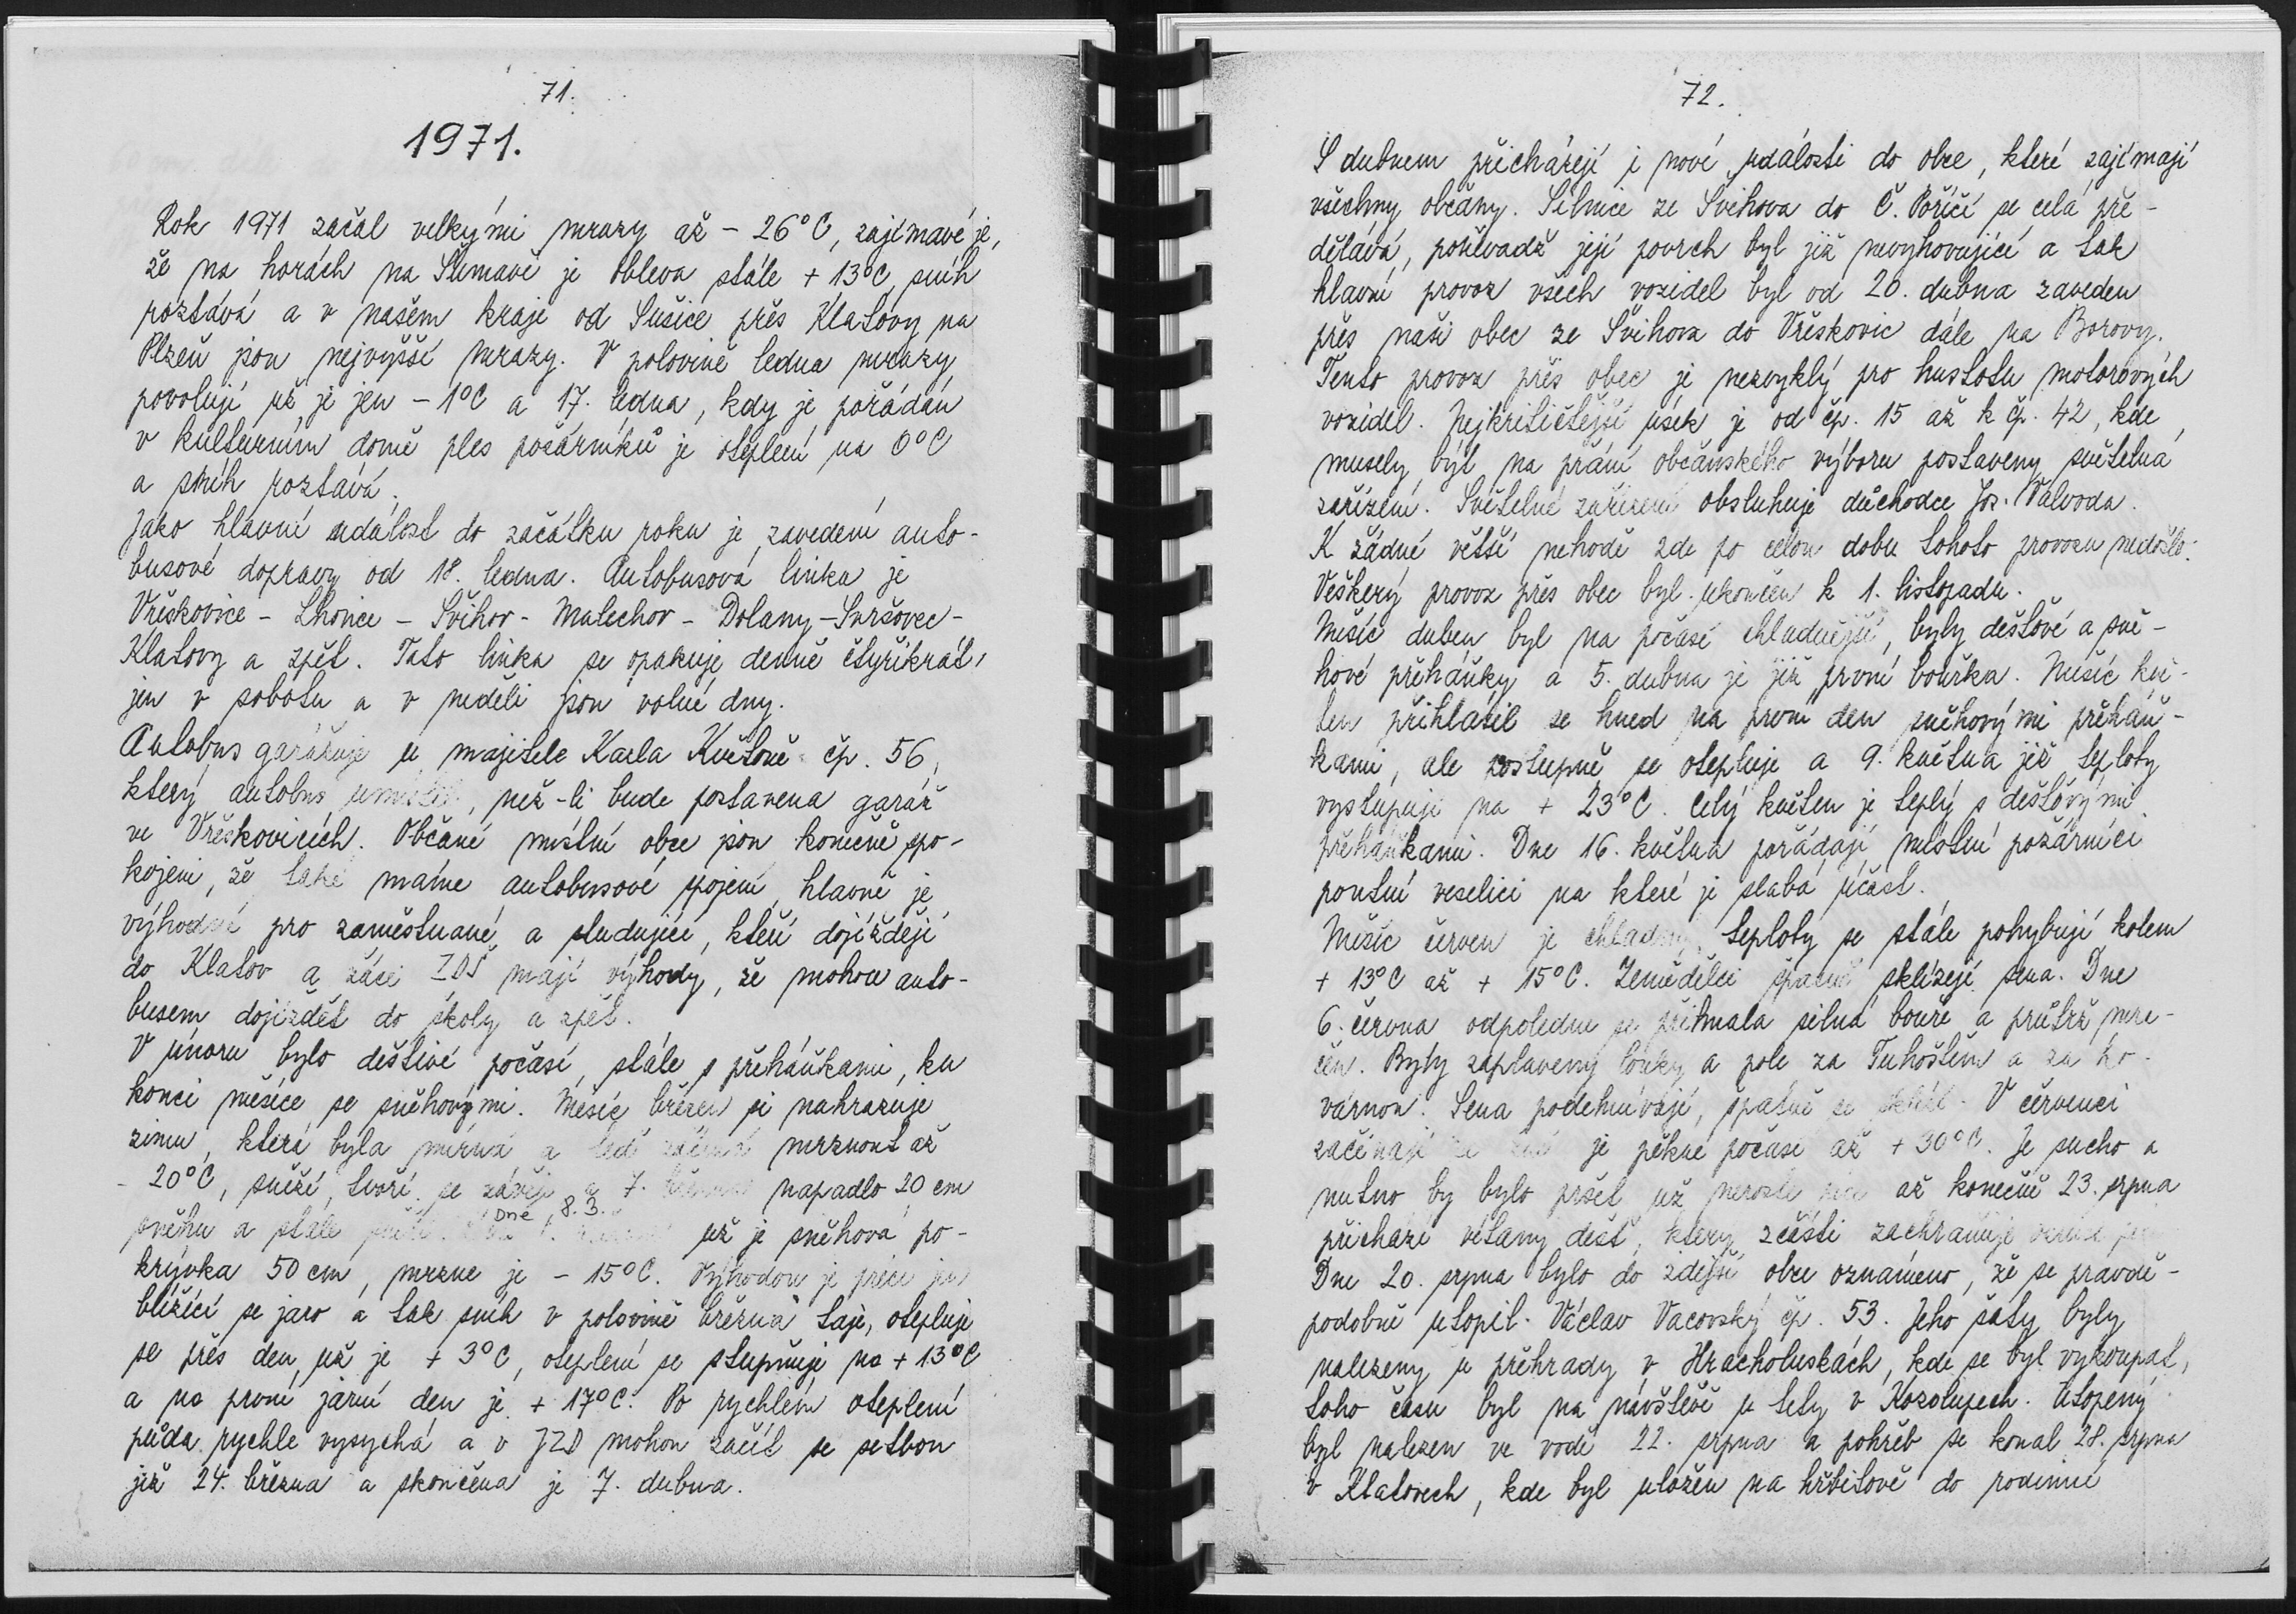 71.
1971.
Rok 1971 začal velkými mrazy až - 26°C, zajímavé je,
že na horách na Šumavě je obleva stále + 13°C, sníh
roztává a v našem kraji od Sušice přes Klatovy na
Plzeň jsou nejvyšší mrazy. V polovině ledna mrazy
povolují už je jen - 1°C a 17. ledna, kdy je pořádán
v kulturním domě ples požárníků je oteplení na 0°C
a sníh roztává.
Jako hlavní událost do začátku roku je zavedení auto-
busové dopravy od 18. ledna. Autobusová linka je
Vřeskovice - Lhovice - Švihov - Malechov - Dolany - Svrčovec -
Klatovy a zpět. Tato linka se opakuje denně čtyřikrát,
jen v sobotu a v neděli jsou volné dny.
Autobus garážuje u majitele Karla Květoně čp. 56,
který autobus umístil, než-li bude postavena garáž
ve Vřeskovicích. Občané místní obce jsou konečně spo-
kojeni, že také máme autobusové spojení, hlavně je
výhodné pro zaměstnané a studující, kteří dojíždějí
do Klatov a žáci ZDŠ mají výhody, že mohou auto-
busem dojíždět do školy a zpět.
V únoru bylo deštivé počasí, stále s přeháňkami, ku
konci měsíce se sněhovými. Měsíc březen si nahrazuje
zimu, která byla mírná a teď začíná mrznout až
- 20°C, sněží, tvoří se závěje a 7. března napadlo 20 cm
sněhu a stále sněží. Dne 8.3. už je sněhová po-
krývka 50 cm, mrzne je - 15°C. Výhodou je přeci jen
blížící se jaro a tak sníh v polovině března taje, otepluje
se přes den, už je + 3°C, oteplení se stupňuje na + 13°C
a na první jarní den je + 17°C. Po rychlém oteplení
půda rychle vysychá a v JZD mohou začít se setbou
již 24. března a skončena je 7. dubna.
72.
S dubnem přicházejí i nové události do obce, které zajímají
všechny občany. Silnice ze Švihova do Č. Poříčí se celá pře-
dělává, poněvadž její povrch byl již nevyhovující a tak
hlavní provoz všech vozidel byl od 20. dubna zaveden
přes naši obec ze Švihova do Vřeskovic dále na Borovy.
Tento provoz přes obec je nezvyklý pro hustotu motorových
vozidel. Nejkritičtější úsek je od čp. 15 až k čp. 42, kde
musely být na přání občanského výboru postaveny světelná
zařízení. Světelné zařízení obsluhuje důchodce Jos. Valvoda.
K žádné větší nehodě zde po celou dobu tohoto provozu nedošlo.
Veškerý provoz přes obec byl ukončen k 1. listopadu.
Měsíc duben byl na počasí chladnější, byly dešťové a sně-
hové přeháňky a 5. dubna je již první bouřka. Měsíc kvě-
ten přihlásil se hned na první den sněhovými přeháň-
kami, ale postupně se otepluje a 9. května již teploty
vystupují na + 23°C. Celý květen je teplý s dešťovými
přeháňkami. Dne 16. května pořádají místní požárníci
poutní veselici na které je slabá účast.
Měsíc červen je chladný, teploty se stále pohybují kolem
+ 13°C až + 15°C. Zemědělci špatně sklízejí sena. Dne
6. června odpoledne se přihnala silná bouře a průtrž mra-
čen. Byly zaplaveny louky a pole za Tuhoštěm a za ko-
várnou. Sena podehnívají, špatně se sklízí. V červenci
začínají je pěkné počasí až + 30°C. Je sucho a
nutno by bylo pršet už neroste nic až konečně 23. srpna
přichází vítaný déšť, který zčásti zachraňuje
Dne 20. srpna bylo do zdejší obce oznámeno, že se pravdě-
podobně utopil Václav Vacovský čp. 53. Jeho šaty byly
nalezeny u přehrady v Hracholuskách, kde se byl vykoupat,
toho času byl na návštěvě u tety v Kozolupech. Utopený
byl nalezen ve vodě 22. srpna a pohřeb se konal 28. srpna
v Klatovech, kde byl uložen na hřbitově do rodinné